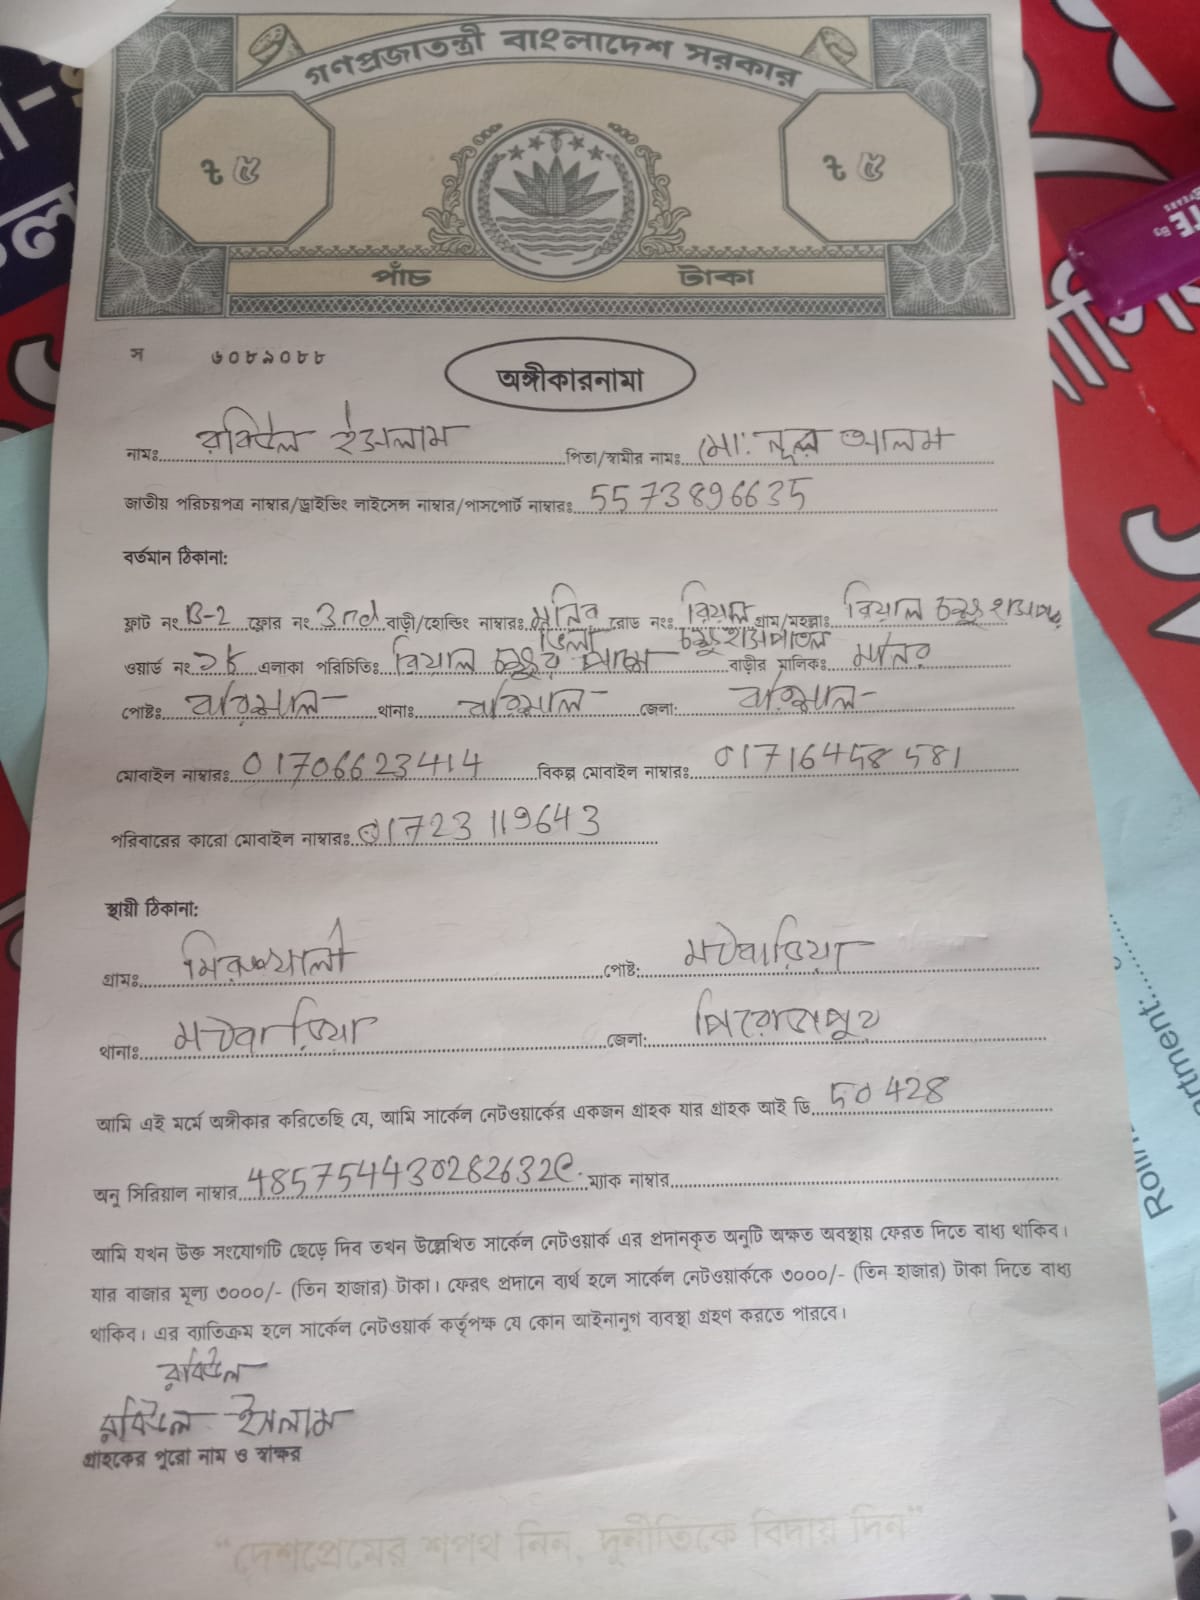 গণপ্রজাতন্ত্রী বাংলাদেশ সরকার
৳ ৫ ৳ ৫
পাঁচ টাকা
স ৬০৮৯০৮৮
অঙ্গীকারনামা
নামঃ রবিউল ইসলাম পিতা/স্বামীর নামঃ মো: নূরুল আলম
জাতীয় পরিচয়পত্র নাম্বার/ড্রাইভিং লাইসেন্স নাম্বার/পাসপোর্ট নাম্বারঃ 5573896635
বর্তমান ঠিকানা:
ফ্লাট নং B-2 ফ্লোর নং 3nd বাড়ী/হোল্ডিং নাম্বারঃ মনির ভিলা রোড নংঃ রিয়াল চক্ষু হাসপাতাল গ্রাম/মহল্লাঃ রিয়াল চক্ষু হাসপাতাল
ওয়ার্ড নং এলাকা পরিচিতিঃ রিয়াল চক্ষুর পাশে বাড়ীর মালিকঃ মনির
পোষ্টঃ বরিশাল থানাঃ বরিশাল জেলা: বরিশাল
মোবাইল নাম্বারঃ 01706623414 বিকল্প মোবাইল নাম্বারঃ 01716458581
পরিবারের কারো মোবাইল নাম্বারঃ 01723119643
স্থায়ী ঠিকানা:
গ্রামঃ মিরুখালী পোষ্ট: মঠবাড়িয়া
থানাঃ মঠবাড়িয়া জেলা: পিরোজপুর
আমি এই মর্মে অঙ্গীকার করিতেছি যে, আমি সার্কেল নেটওয়ার্কের একজন গ্রাহক যার গ্রাহক আই ডি 50428
অনু সিরিয়াল নাম্বার 485754430282632C ম্যাক নাম্বার
আমি যখন উক্ত সংযোগটি ছেড়ে দিব তখন উল্লেখিত সার্কেল নেটওয়ার্ক এর প্রদানকৃত অনুটি অক্ষত অবস্থায় ফেরত দিতে বাধ্য থাকিব।
যার বাজার মূল্য ৩০০০/- (তিন হাজার) টাকা। ফেরৎ প্রদানে ব্যর্থ হলে সার্কেল নেটওয়ার্ককে ৩০০০/- (তিন হাজার) টাকা দিতে বাধ্য
থাকিব। এর ব্যাতিক্রম হলে সার্কেল নেটওয়ার্ক কর্তৃপক্ষ যে কোন আইনানুগ ব্যবস্থা গ্রহণ করতে পারবে।
রবিউল
রবিউল ইসলাম
গ্রাহকের পুরো নাম ও স্বাক্ষর
"দেশপ্রেমের শপথ নিন, দুর্নীতিকে বিদায় দিন"